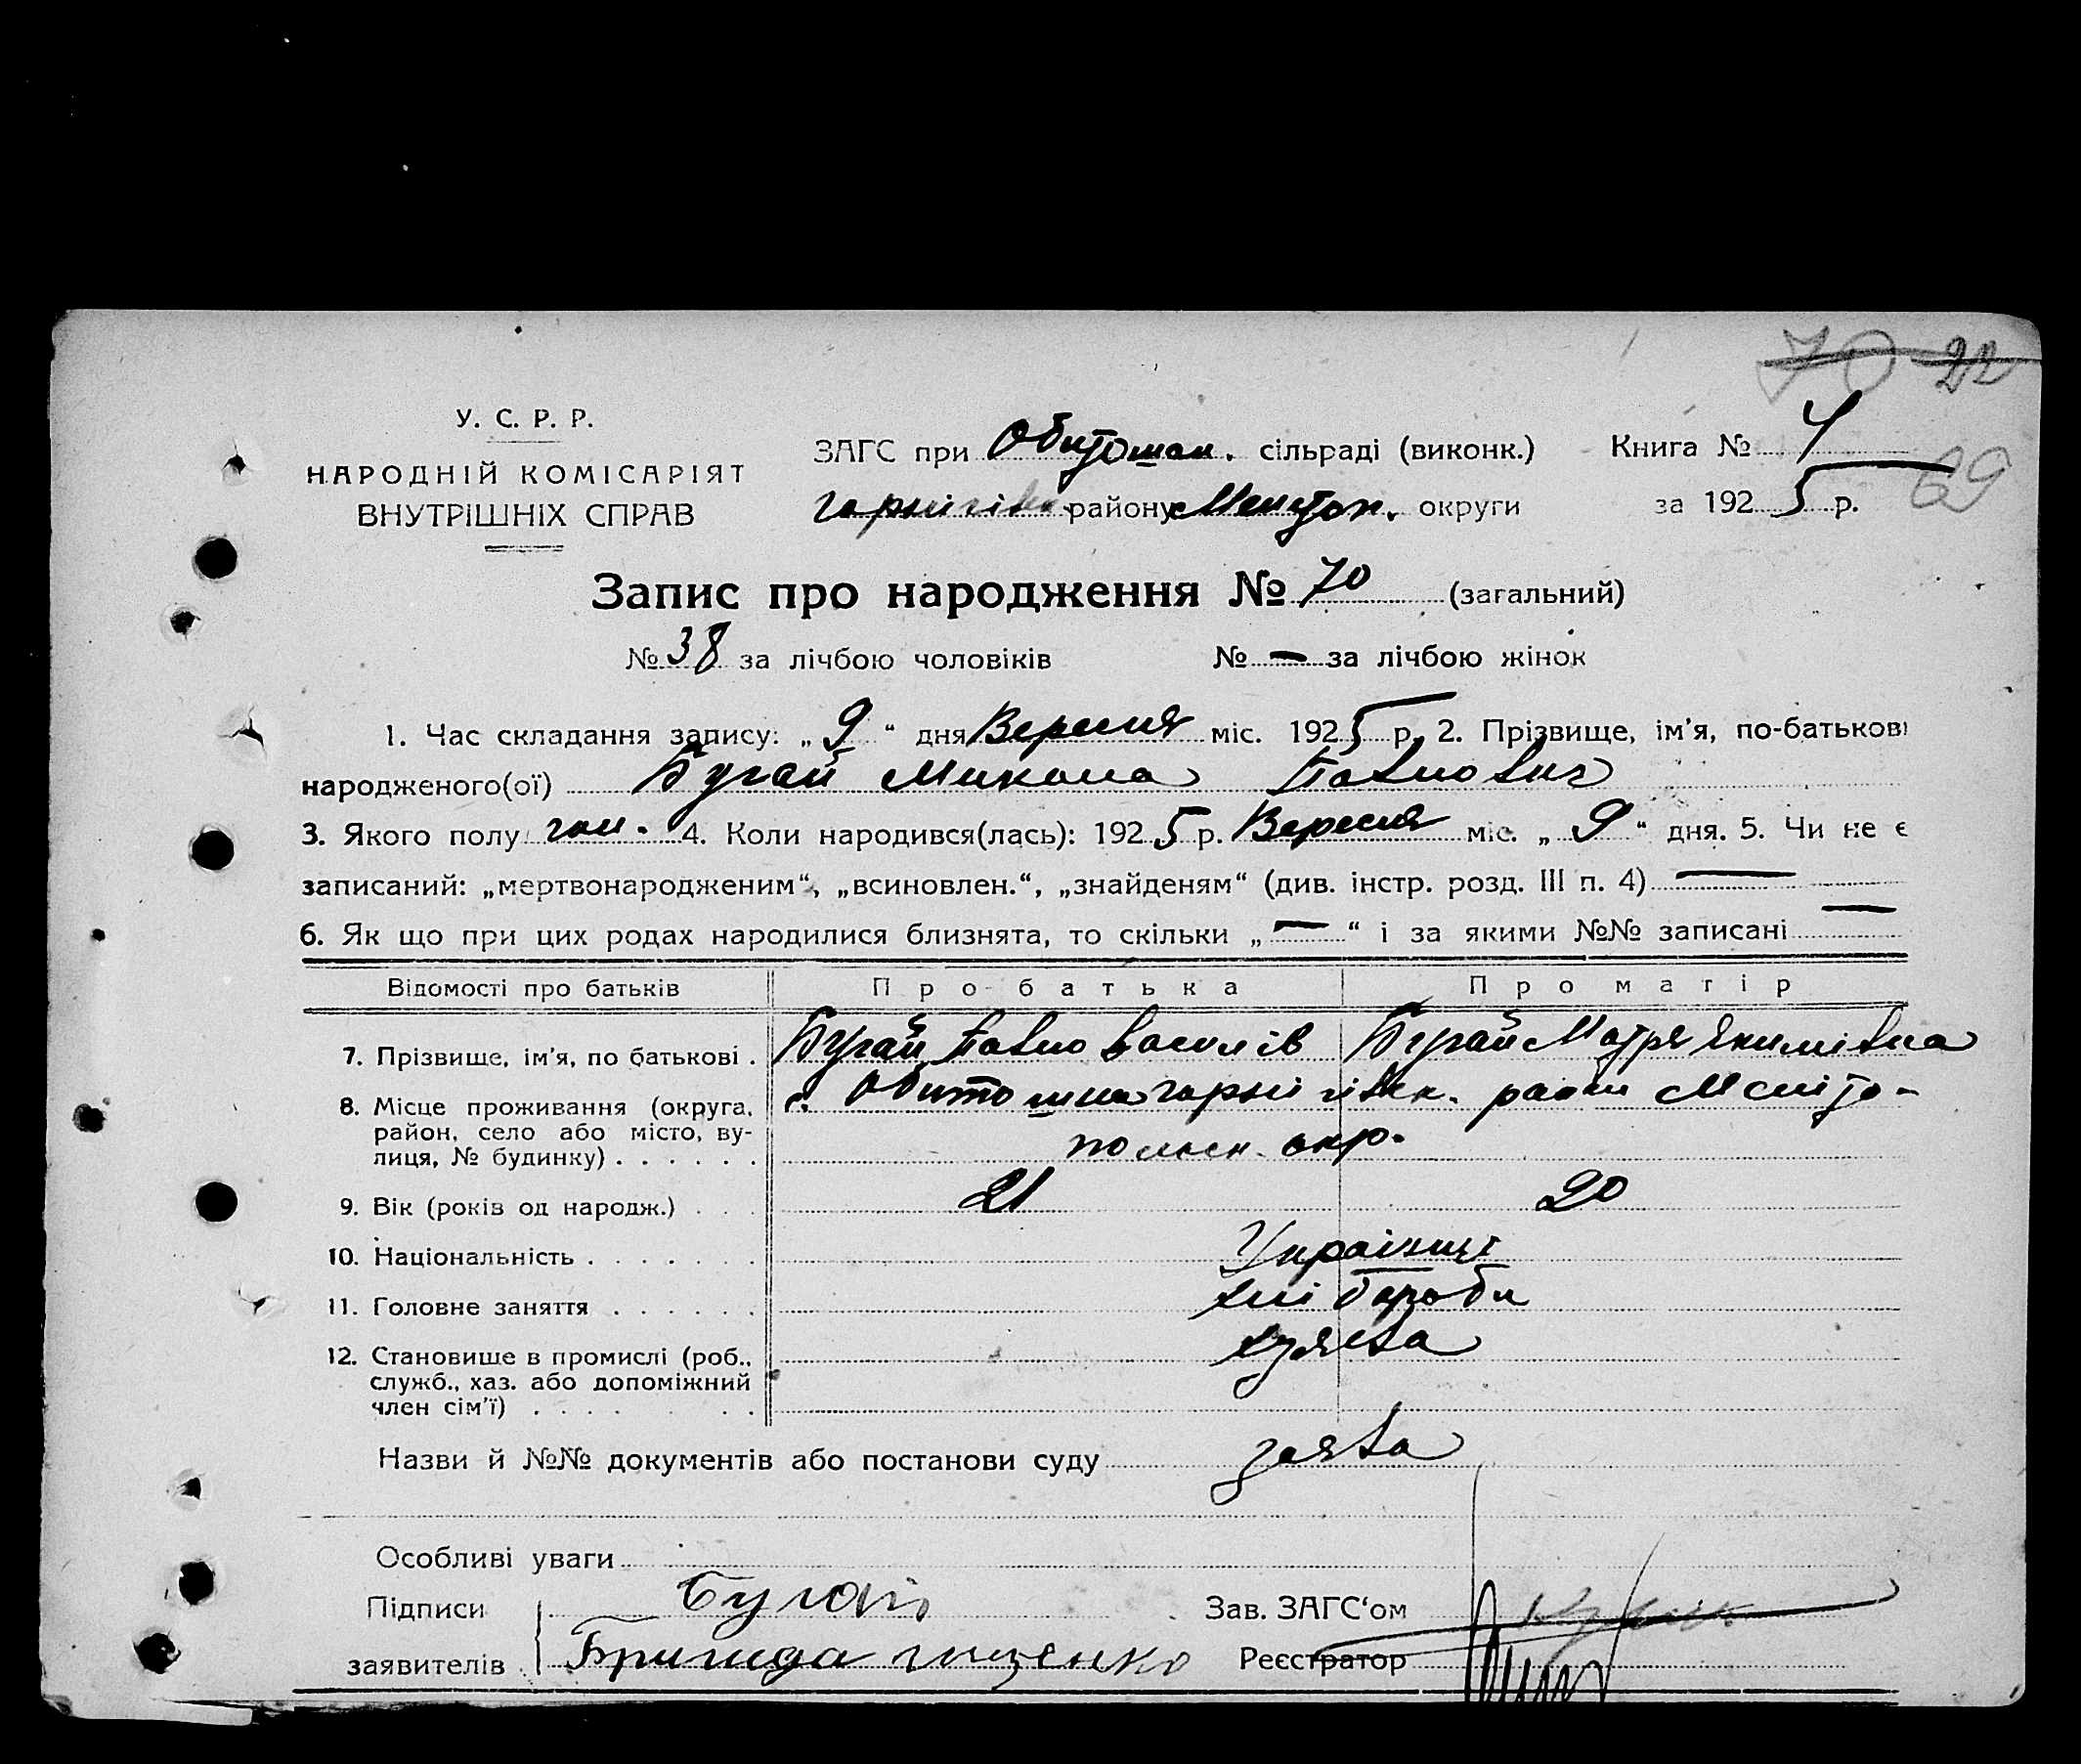 70 22
У. С. Р. Р.
НАРОДНІЙ КОМІСАРІЯТ
ВНУТРІШНІХ СПРАВ
ЗАГС при Обиточан. сільраді (виконк.) Книга № 4
району Мелітоп. округи за 1925 р. 69
Запис про народження № 70 (загальний)
№ 38 за лічбою чоловіків № — за лічбою жінок
1. Час складання запису: „ 9 “ дня Вересня міс. 1925 р. 2. Прізвище, ім'я, по-батькові
народженого(ої) Бугай Микола Павлович
3. Якого полу чол. 4. Коли народився(лась): 1925 р. Вересня міс. „ 9 “ дня. 5. Чи не є
записаний: „мертвонародженим“, „всиновлен.“, „знайденям“ (див. інстр. розд. III п. 4) —
6. Як що при цих родах народилися близнята, то скільки „ — “ і за якими №№ записані —
Відомості про батьків Про батька Про матір
7. Прізвище, ім'я, по батькові . Бугай Павло Василів Бугай Мотря Якимівна
8. Місце проживання (округа, район, село або місто, вулиця, № будинку) . . . . . .
с. Обиточна Чернігівськ. район Меліто-
польськ. окр.
9. Вік (років од народж.) . . . 21 20
10. Національність . . . . . . . Українці
11. Головне заняття . . . . . . хліборобы
12. Становище в промислі (роб., служб., хаз. або допоміжний член сім'ї) . . . . . . .
Назви й №№ документів або постанови суду заява
Особливі уваги
Підписи Бугай Зав. ЗАГС‘ом
заявителів Реєстратор